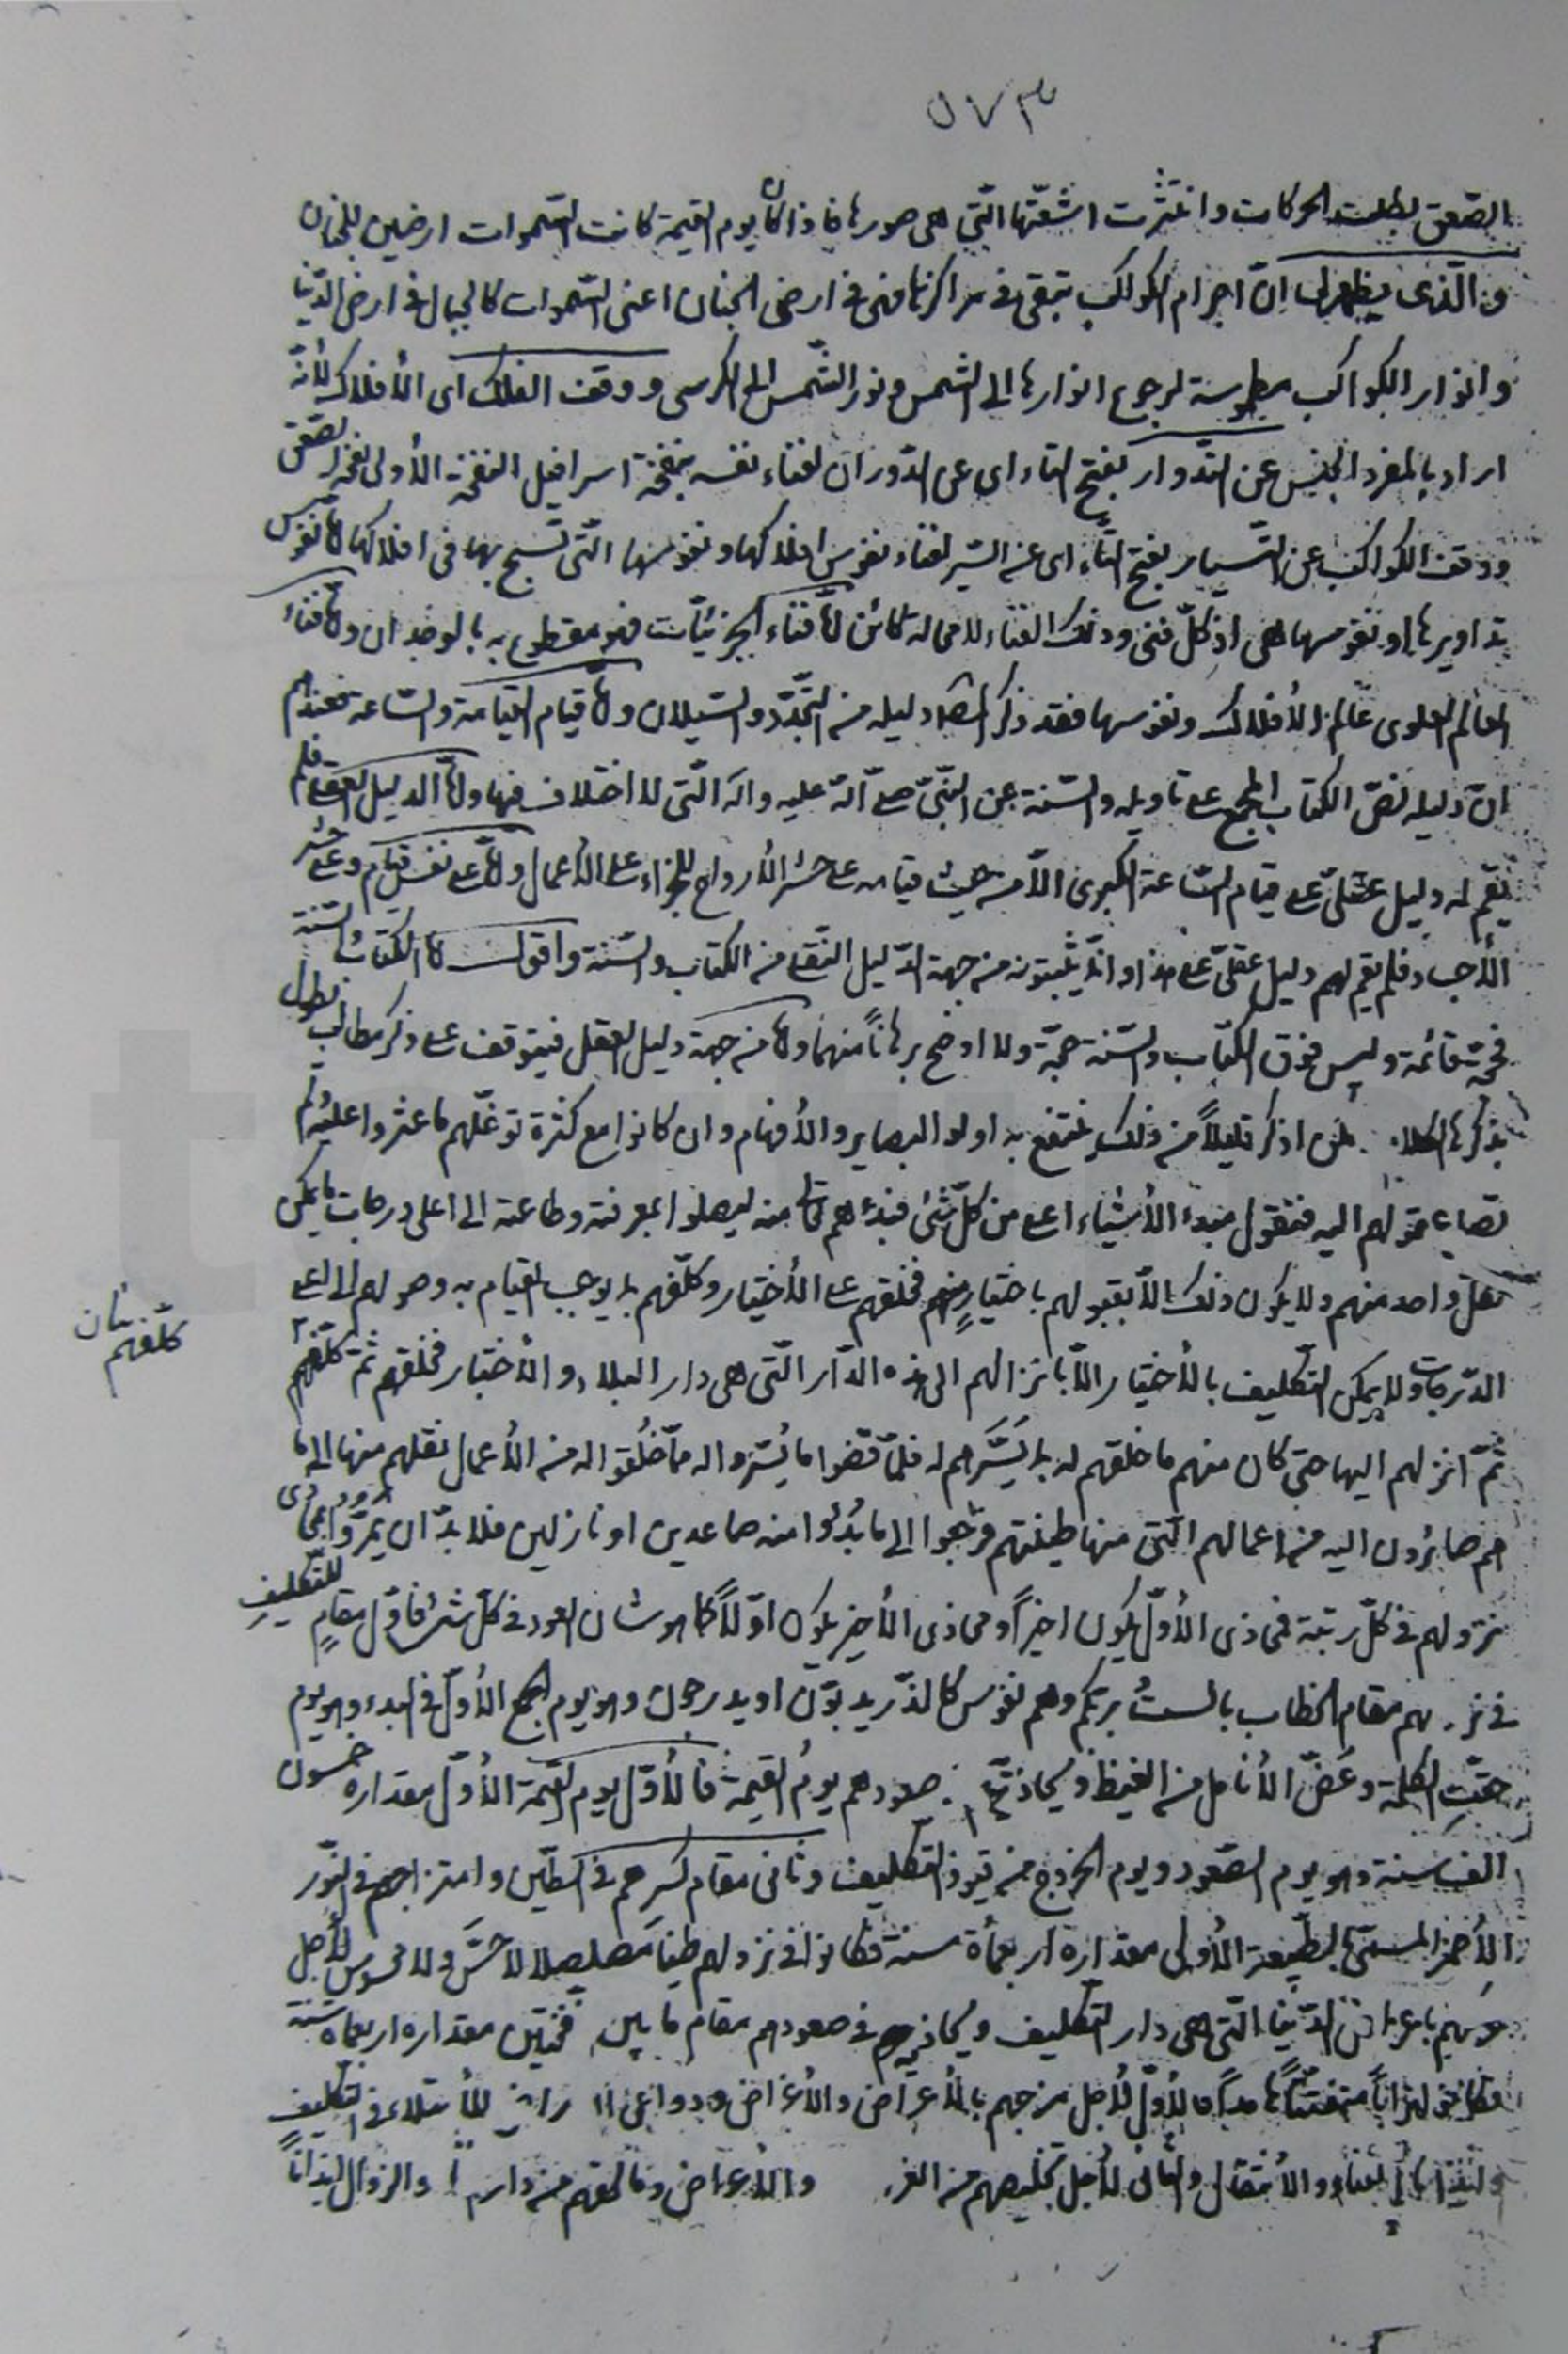 ٥٧٣
الصّعق بطلت الحركات وانتثرت اشعّتها الّتى هى صورها فاذا كان يوم القيمة كانت السّموات ارضين للجنان
والّذى يظهر لى انّ اجرام الكواكب تبقى فى مراكزها فهى فى ارض الجنان اعنى السّموات كالجبال فى ارض الدّنيا
وانوار الكواكب مطموسة لرجوع انوارها الى الشمس ونور الشّمس الى الكرسى ووقف الفلك اى الأفلاك لأنّه
اراد بالمفرد الجنس عن التّدوار بفتح التاء اى عن الدّوران لفناء نفسه بنفخة اسرافيل النفخة الأولى نفخة الصّعق
ووقف الكواكب عن التّسيار بفتح التّاء اى عن السّير لفناء نفوس افلاكها ونفوسها الّتى تسبح بها فى افلاكها امّا نفوس
تداويرها او نفوسها هى اذ كلّ فنى وذلك الفناء لا محالة كائن امّا فناء الجزئيّات فهو مقطوع به بالوجدان وامّا فناء
العالم العلوى عالم الأفلاك ونفوسها فقد ذكر المصنّف دليله من التّجدّد والسّيلان وامّا قيام القيامة والسّاعة فعندهم
انّ دليله نصّ الكتاب المجمع على تاويله والسّنة عن النّبىّ صلّى اللّه عليه واله الّتى لا اختلاف فيها وامّا الدليل العقلى فلم
يقم له دليل عقلىّ على قيام السّاعة الكبرى الّا من حيث قيامه على حشر الأرواح للجزاء على الأعمال وامّا على نفس قيام وعلى حشر
الأجساد فلم يقم لهم دليل عقلىّ على هذا وانّما يثبتونه من جهة الدّليل النّقلى من الكتاب والسّنة واقول امّا الكتاب والسّنة
فحجّة قائمة وليس فوق الكتاب والسّنة حجّة ولا اوضح برهاناً منهما وامّا من جهة دليل العقل فيتوقف على ذكر مطالب يطول
بذكرها الكلام لكن اذكر قليلاً من ذلك ينتفع به اولوا البصاير والأفهام وان كانوا مع كثرة توغّلهم ما عثروا عليه ولم
تصل عقولهم اليه فنقول مبدء الأشياء اعلى من كلّ شئ فبدءهم منه ليصلوا بمعرفته وطاعته الى اعلى درجات ما يمكن
لكلّ واحد منهم ولا يكون ذلك الّا بقبولهم باختيارٍ منهم فخلقهم على الأختيار وكلّفهم بما يوجب القيام به وصولهم الى اعلى
الدّرجات ولا يمكن التّكليف بالأختيار الّا بانزالهم الى هذه الدّار الّتى هى دار البلاء والأختبار فخلقهم ثمّ كلّفهم
كلّفهم
ثمّ انزلهم اليها حتى كان منهم ما خلقهم له بما يَسَّرَهم له فلمّا قضوا ما يُسّروا له ممّا خُلقوا له من الأعمال نقلهم منها الى ما
هم صائرون اليه من اعمالهم الّتى منها طينتهم فرجعوا الى ما بُدئوا منه صاعدين او نازلين فلا بدّ ان يمرّوا بمحاذى
نزولهم فى كلّ رتبة فمحاذى الأوّل يكون اخيراً ومحاذى الأخير يكون اوّلاً كما هو شان العود فى كلّ شئ فاوّل مقامٍ للتّكليف
فى نزولهم مقام الخطاب بالستُ بربّكم وهم نفوس كالذّر يدبّون او يدرجون وهو يوم الجمع الأوّل فى البدء وهو يوم
حقّت الكلمة وعَضّ الأنامل من الغيظ ويحاذيه صعودهم يومُ القيمة فالأوّل يوم القيمة الأوّل مقداره خمسون
الف سنة وهو يوم الصّعود ويوم الخروج من قيود التّكليف وثانى مقام كسرهم فى الطّين وامتزاجهم فى النّور
الأخضر المسمّى بالطّبيعة الأولى مقداره اربعمأة سنة فكانوا فى نزولهم طيناً صلصلا لا حسّ ولا محسوس لأجل
الدّنيا الّتى هى دار التكليف ويحاذيهم فى صعودهم مقام ما بين نفختين مقداره اربعمأة سنة
فكانوا لأجل مزجهم بالأعراض والأغراض ودواعى للأبتلاء فى التّكليف
والأنتقال لأجل تخليصهم من والأعراض والزوال ايذاناً